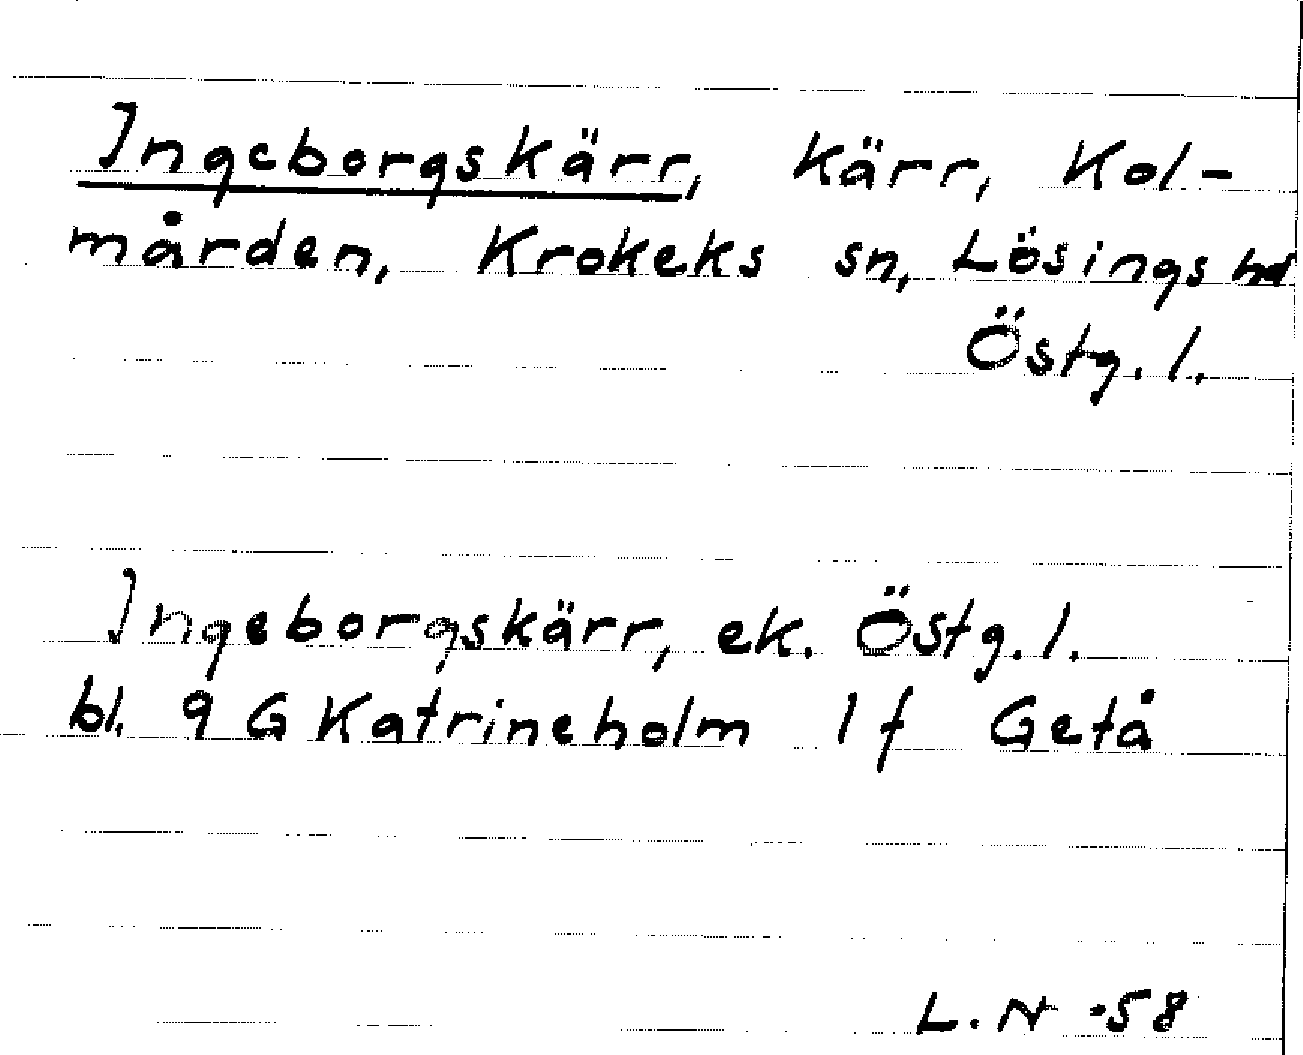 Ingeborgskärr, kärr, Kol-
mården, Krokeks sn, Lösings hd
Östg. l.
Ingeborgskärr, ek. Östg. l.
bl. 9 G Katrineholm 1 f Getå
L. N -58